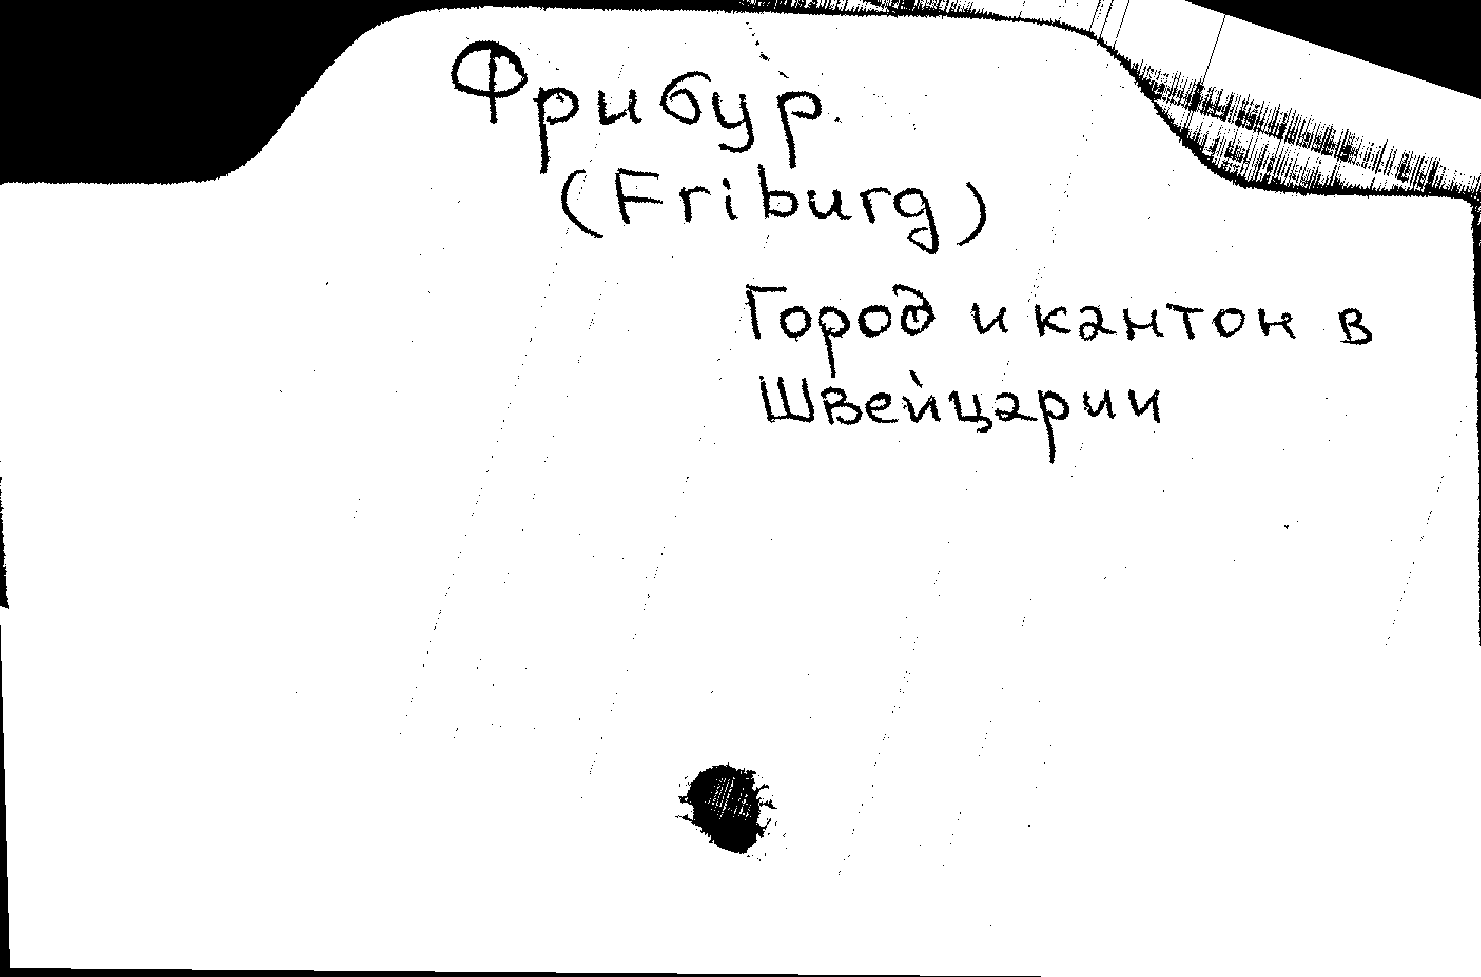 Фрибур.
(Friburg)
Город и кантон в
Швейцарии